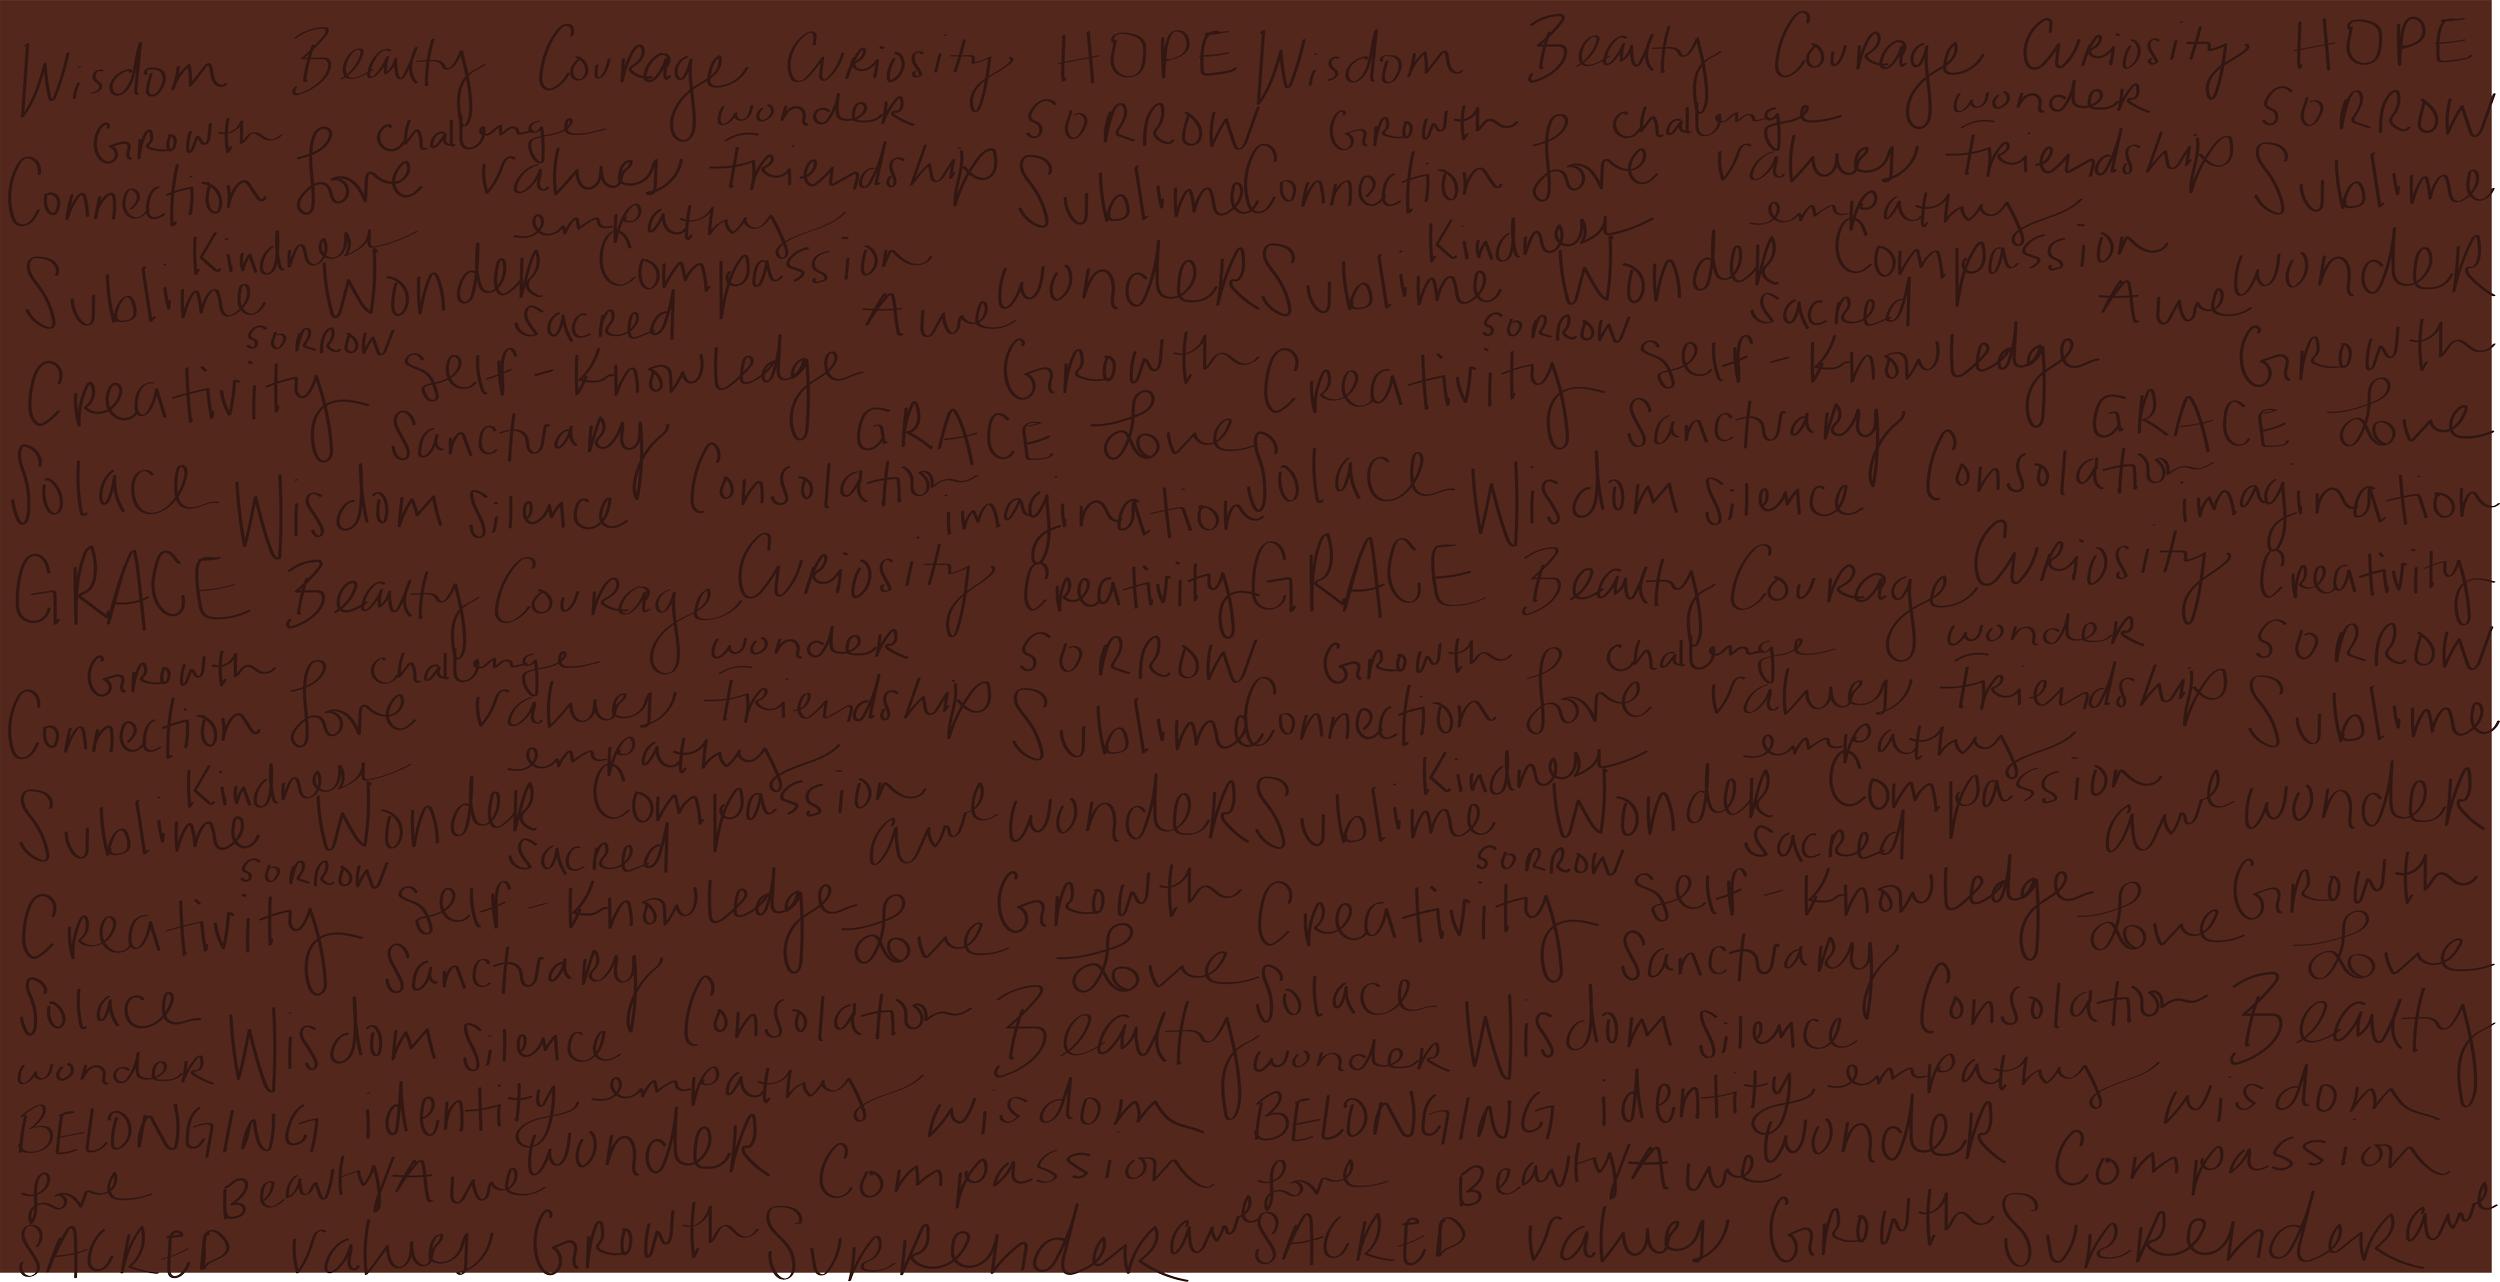 Wisdom Beauty Courage Curiosity HOPE Wisdom Beauty Courage Curiosity HOPE
Growth challenge wonder SORROW Growth challenge wonder SORROW
Connection love values friendship Sublime Connection love values friendship Sublime
Kindness empathy Kindness empathy
Sublime Wonder Compassion wonder Sublime Wonder Compassion wonder
SORROW Sacred Awe SORROW Sacred Awe
Creativity Self-Knowledge Growth Creativity Self-Knowledge Growth
Sanctuary GRACE love Sanctuary GRACE love
Solace Wisdom Silence Consolation imagination Solace Wisdom Silence Consolation imagination
GRACE Beauty Courage Curiosity Creativity GRACE Beauty Courage Curiosity Creativity
Growth challenge wonder SORROW Growth challenge wonder SORROW
Connection love values friendship Sublime Connection love values friendship Sublime
Kindness empathy Kindness empathy
Sublime Wonder Compassion awe wonder Sublime Wonder Compassion awe wonder
SORROW Sacred SORROW Sacred
Creativity Self-Knowledge love Growth Creativity Self-Knowledge love Growth
Sanctuary love Sanctuary love
Solace Wisdom Silence Consolation Beauty Solace Wisdom Silence Consolation Beauty
wonder wonder
BELONGING identity empathy wisdom BELONGING identity empathy wisdom
love Beauty Awe wonder Compassion love Beauty Awe wonder Compassion
SACRED values Growth Surrender awe SACRED values Growth Surrender awe